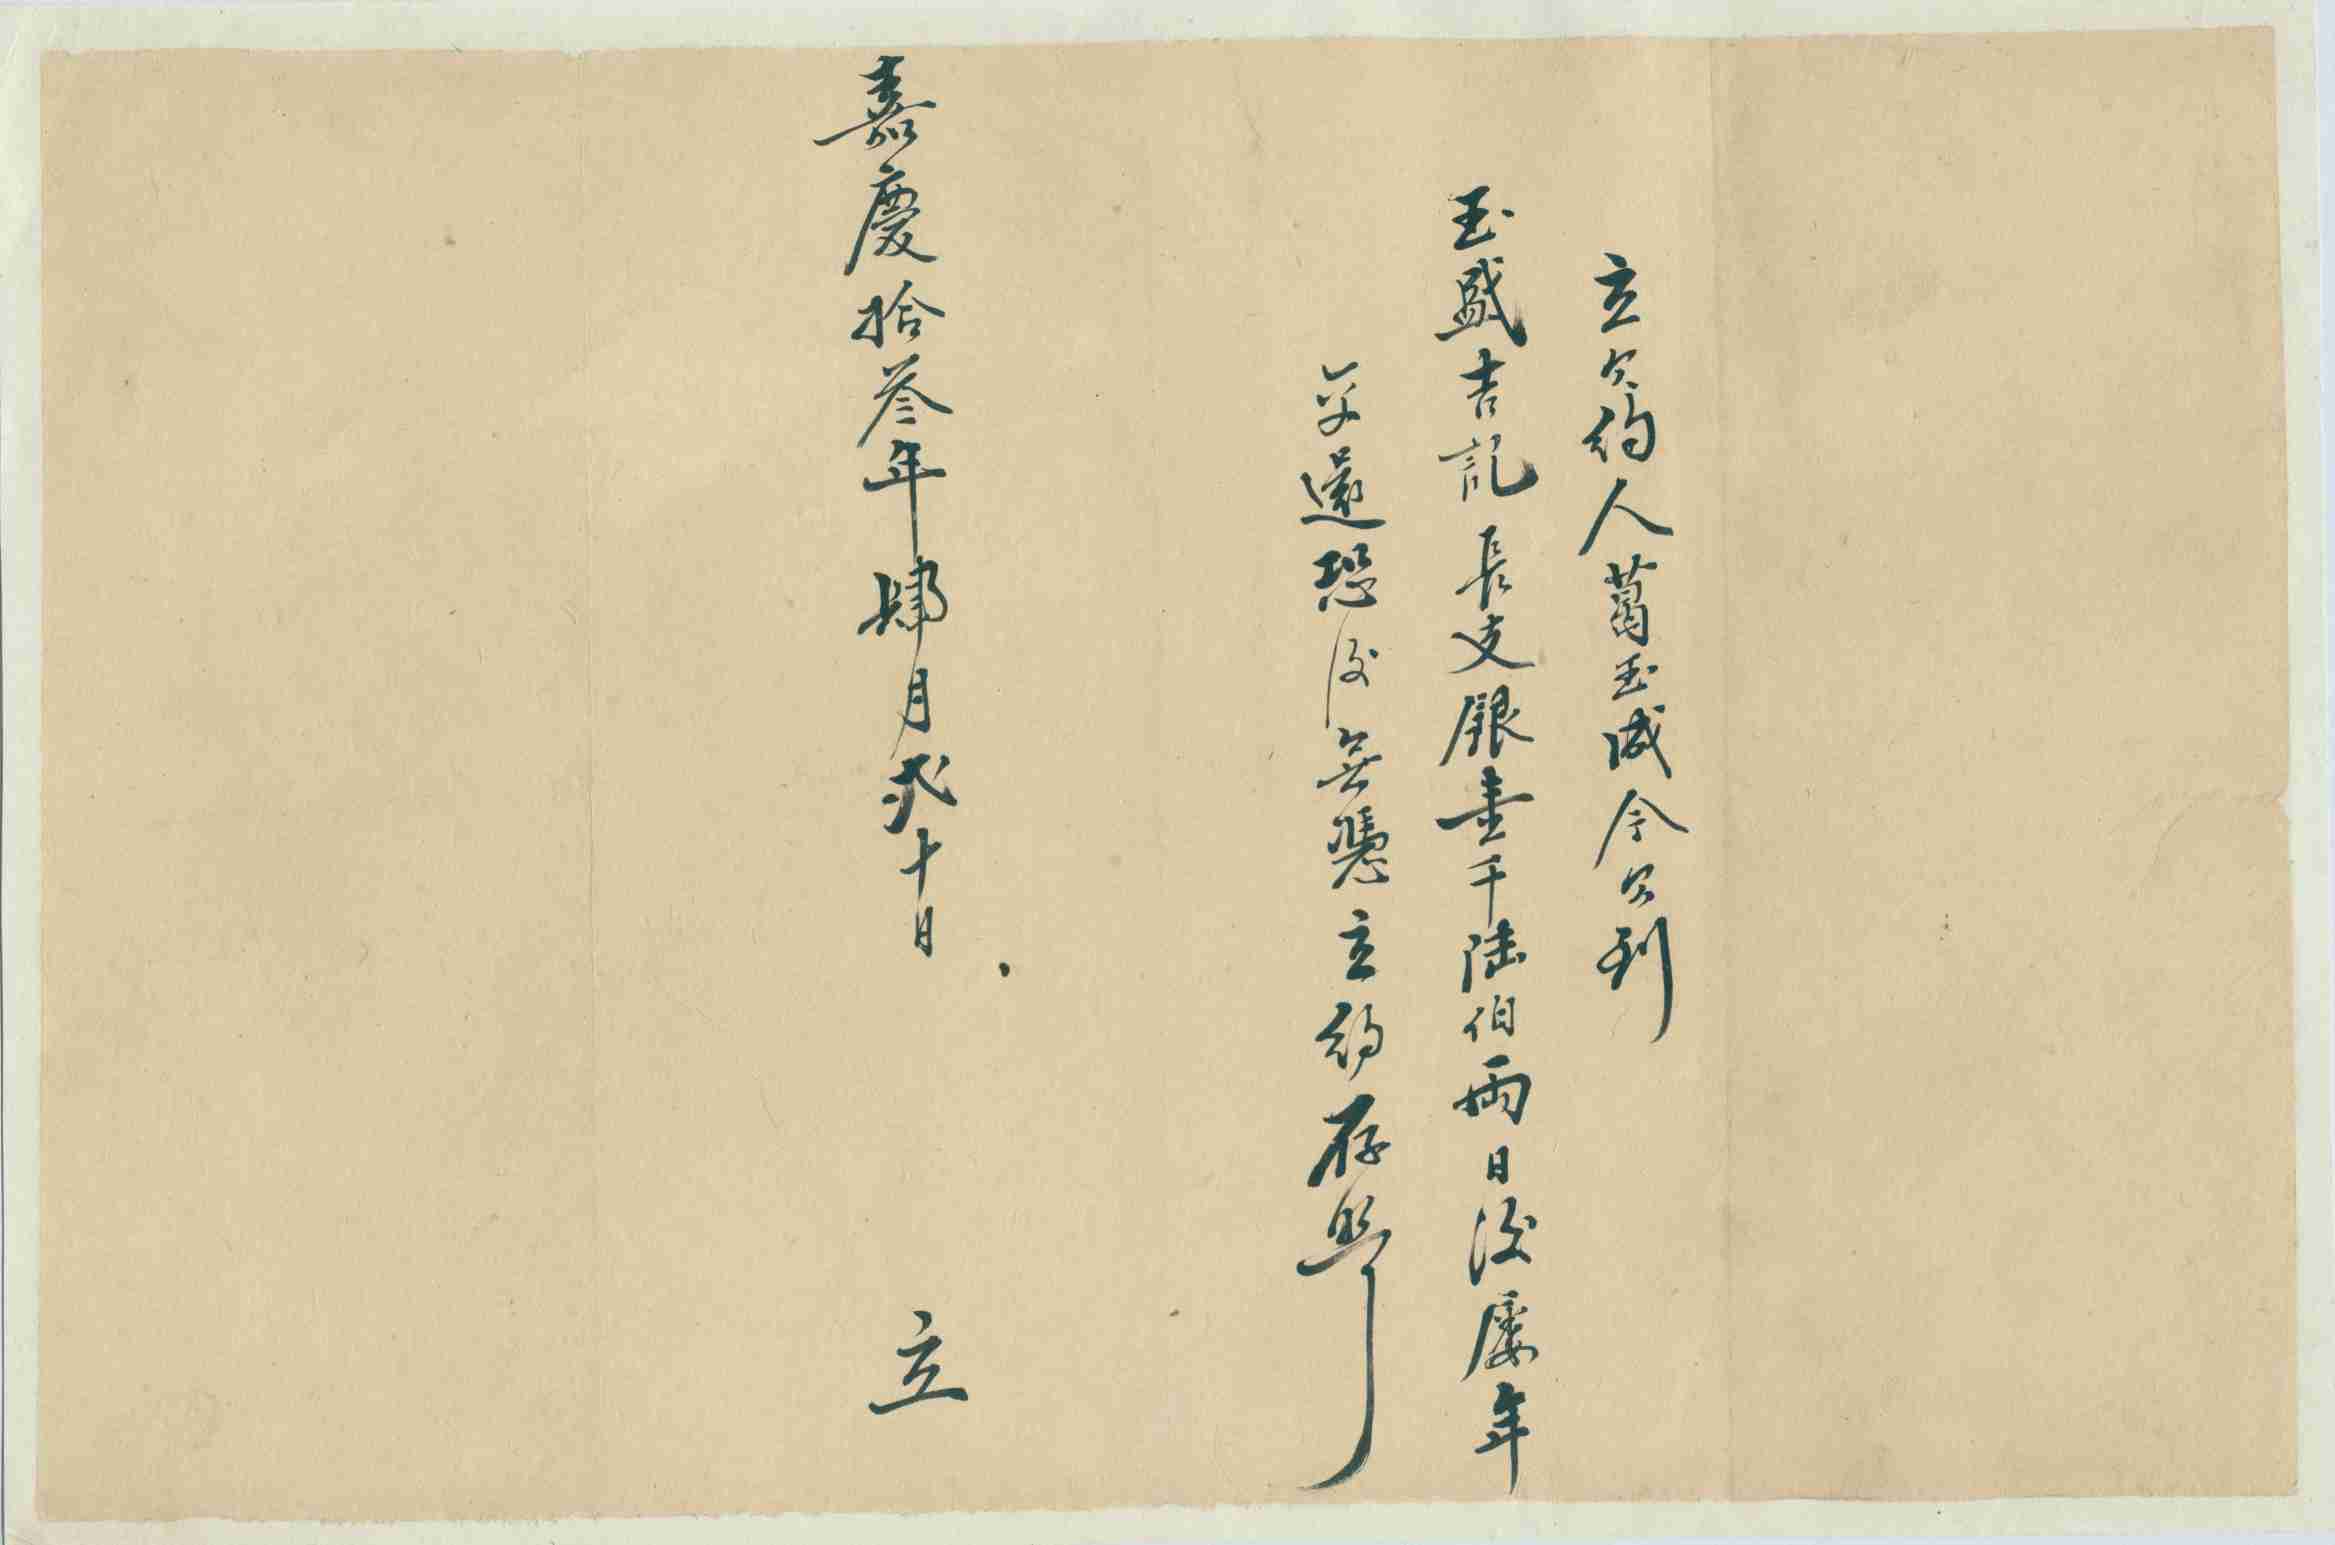 立欠約人葛玉成今欠到
玉盛吉記長支銀壹千陸伯兩日後屡年
交還恐後無憑立約存照
嘉慶拾叁年肆月弍十日 立